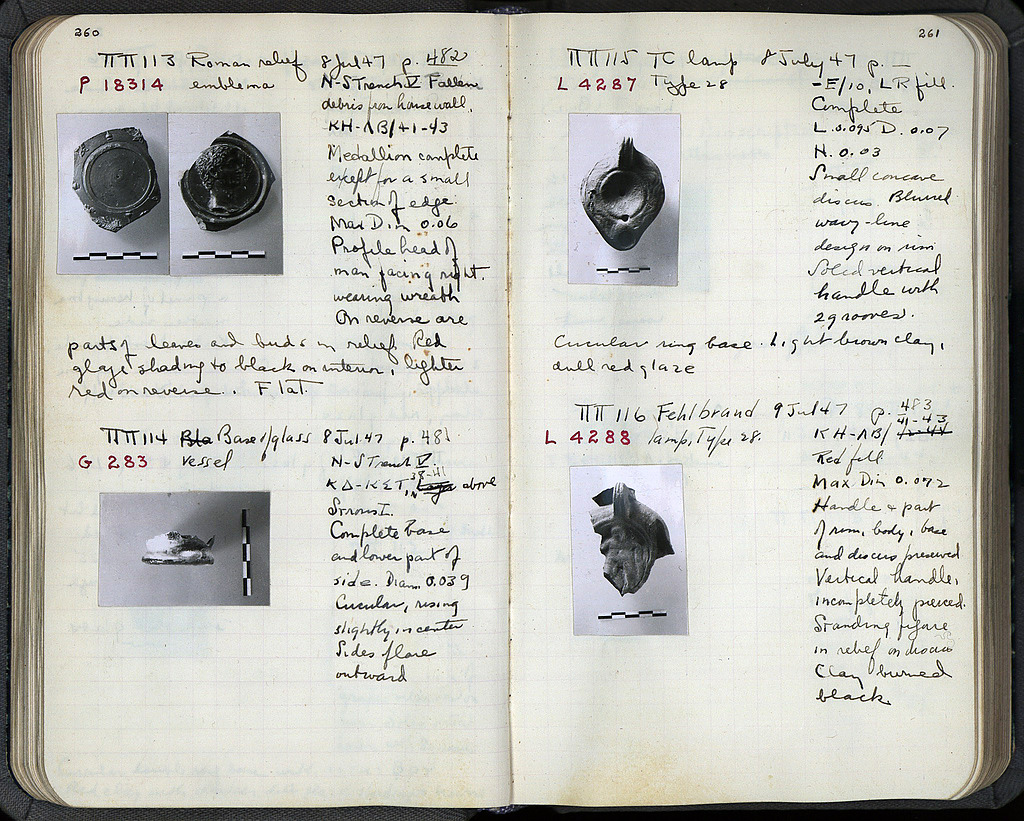 260
ΠΠ 113 Roman relief 8 Jul 47 p. 482
P 18314 emblema N-S Trench V Fallen
debris from house wall.
KH-ΛB/41-43
Medallion complete
except for a small
section of edge.
Max Dim 0.06
Profile head of
man facing right.
wearing wreath
On reverse are
parts of leaves and buds in relief. Red
glaze shading to black on interior, lighter
red on reverse. Flat.
ΠΠ 114 Bla Base of glass 8 Jul 47 p. 481
G 283 vessel N-S Trench V.
38-41
KΔ-KΣT, in above
Stros I.
Complete base
and lower part of
side. Diam 0.039
Circular, rising
slightly in center
Sides flare
outward
261
ΠΠ 115 TC lamp 8 July 47 p. —
L 4287 Type 28 -E/10, LR fill.
Complete
L. 0.095 D. 0.07
H. 0.03
Small concave
discus. Blurred
wavy-line
design on rim
Solid vertical
handle with
2 grooves.
Circular ring base. Light brown clay,
dull red glaze
ΠΠ 116 Fehlbrand 9 Jul 47 p. 483
41-43
L 4288 lamp, Type 28. KH-ΛB/
Red fill
Max Dim 0.072
Handle & part
of rim, body, base
and discus preserved
Vertical handle,
incompletely pierced.
Standing figure
in relief on discus
Clay burned
black.